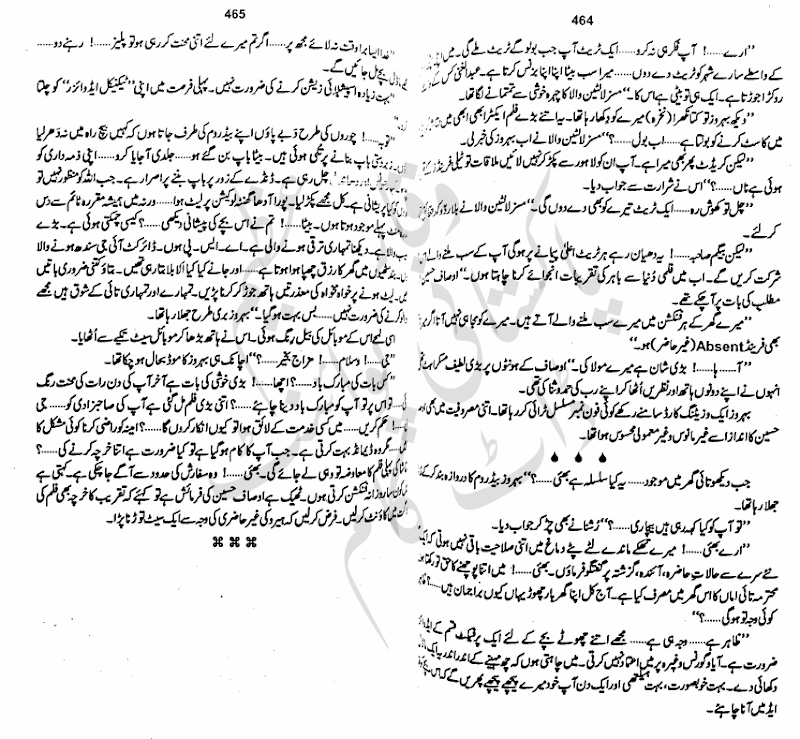 464
"ارے......! آپ فکر ہی نہ کرو...... ایک ٹریٹ آپ جب بولو گے ٹریٹ ملے گی۔ میں
کے واسطے سارے شہر کو ٹریٹ دے دوں...... میرا سب بیٹا اپنا اپنا بزنس کرتا ہے۔ عبدالغنی کس کے
روکڑا جوڑتا ہے۔ ایک ہی تو بیٹی ہے اس کا۔" مسز لالٹین والا کا چہرہ خوشی سے تمتمانے لگا تھا۔
"دیکھ بہروز تو کتنا نکھرا (نخرہ) میرے کو دکھا رہا تھا۔ یہ اتنے بڑے فلم ایکٹرا بھی ابھی میں
میں کاسٹ کرنے کو بولتا ہے...... اب بول......؟" مسز لالٹین والا نے اب بہروز کی خبر لی۔
"لیکن کریڈٹ پھر بھی میرا ہے۔ آپ ان کو لاہور سے پکڑ کر نہیں لائیں ملاقات تو
ہوئی ہے ناں......؟" اس نے شرارت سے جواب دیا۔
"چل تو کھوش رہ...... ایک ٹریٹ تیرے کو بھی دے دوں گی۔" مسز لالٹین والا نے
کر لئے۔
"لیکن بیگم صاحبہ......! یہ دھیان رہے ہر ٹریٹ اعلیٰ پیمانے پر ہو گی آپ کے سب ملنے والے
شرکت کریں گے۔ اب میں فلمی دُنیا سے باہر کی تقریبات انجوائے کرنا چاہتا ہوں۔" اوصاف حسین
مطلب کی بات پر آچکے تھے۔
"میرے گھر کے ہر فنکشن میں میرے سب ملنے والے آتے ہیں۔ میرے کو مجا ہی نہیں آتا اگر
بھی فرینڈ Absent (غیر حاضر) ہو۔"
"آ...... ہا......! بڑی شان ہے میرے مولا کی۔" اوصاف کے ہونٹوں پر بڑی لطیف مسکراہٹ
انہوں نے اپنے دونوں ہاتھ اور نظریں اُٹھا کر اپنے رب کی حمد و ثنا کی تھی۔
بہروز ایک وزیٹنگ کارڈ سامنے رکھے کوئی فون نمبر مسلسل ٹرائی کر رہا تھا۔ اتنی مصروفیت میں بھی
حسین کا انداز اسے غیر مانوس و غیر معمولی محسوس ہوا تھا۔
جب دیکھو تائی گھر میں موجود...... یہ کیا سلسلہ ہے بھئی......؟" بہروز بیڈ روم کا دروازہ بند کر کے
جھلا رہا تھا۔
"تو آپ کو کیا کہہ رہی ہیں بیچاری......؟" رُشنا نے بھی چڑ کر جواب دیا۔
"ارے بھئی......! میرے تھکے ماندے لٹے پٹے دماغ میں اتنی صلاحیت باقی نہیں ہوتی کہ
نئے سرے سے حالاتِ حاضرہ، آئندہ، گزشتہ پر گفتگو فرماؤں۔ بھئی......! میں اتنا پوچھنے کا حق تو رکھتا
محترمہ تائی اماں کا اس گھر میں مصرف کیا ہے۔ آج کل اپنا گھر بار چھوڑ یہاں کیوں براجمان ہیں......؟
کوئی وجہ تو ہو گی......؟"
"ظاہر ہے...... وجہ ہی ہے...... مجھے اتنے چھوٹے بچے کے لئے ایک پرفیکٹ قسم کے
ضرورت ہے۔ آیا، گورنس وغیرہ پر میں اعتماد نہیں کرتی۔ میں چاہتی ہوں کہ چھ مہینے کے اندر اندر یہ
دکھائی دے۔ بہت خوبصورت، بہت ہیلتھی اور ایک دن آپ خود میرے پیچھے پیچھے پھریں گے کہ اس
ایڈ میں آنا چاہئے۔
465
"خدا ایسا برا وقت نہ لائے مجھ پر...... اگر تم میرے لئے اتنی محنت کر رہی ہو تو پلیز......! رہنے دو......
چل جائیں گے۔
بہت زیادہ اسپیشلائزیشن کرنے کی ضرورت نہیں۔ پہلی فرصت میں اپنی "ٹیکنیکل ایڈوائزر" کو چلتا
"توبہ......! چوروں کی طرح دبے پاؤں اپنے بیڈ روم کی طرف جاتا ہوں کہ کہیں بیچ راہ میں نہ دھر لیا
زبردستی باپ بنانے پر تلی ہوئی ہیں۔ بیٹا باپ بن گئے ہو...... جلدی آجایا کرو...... اپنی ذمہ داری کو
چل رہی ہے۔ ڈنڈے کے زور پر باپ بننے پر اصرار ہے۔ جب اللہ کو منظور نہیں تو
کیا پریشانی ہے۔ کل مجھے پکڑ لیا۔ پورا آدھا گھنٹہ لوکیشن پر لیٹ ہوا...... ورنہ میں ہمیشہ مقررہ ٹائم سے دس
پہلے موجود ہوتا ہوں۔ بیٹا......! تم نے اس بچے کی پیشانی دیکھی......؟ کیسی چمکتی ہوئی ہے۔ بڑے
والا ہے۔ دیکھنا تمہاری ترقی ہونے والی ہے۔ اے۔ ایس۔ پی ہوں۔ ڈائرکٹ آئی جی سندھ ہونے والا
میں گھر کا رزق چھپا ہوا ہوتا ہے...... اور جانے کیا کیا اَلا بلا بتا رہی تھیں۔ بتاؤ کتنی ضروری باتیں
لیٹ ہونے پر خواہ مخواہ کی معذرتیں ہاتھ جوڑ کر کرنا پڑیں۔ تمہارے اور تمہاری تائی کے شوق ہیں مجھے
کرنے کی ضرورت نہیں...... بس بہت ہو گیا۔" بہروز بری طرح جھلا رہا تھا۔
اسی لمحے اس کے موبائل کی بیل رنگ ہوئی۔ اس نے ہاتھ بڑھا کر موبائل سیٹ تکیے سے اُٹھایا۔
"جی......! و سلام......! مزاج بخیر......؟" اچانک ہی بہروز کا موڈ بحال ہو چکا تھا۔
"کس بات کی مبارک باد......؟ اچھا......! بڑی خوشی کی بات ہے آخر آپ کی دن رات کی محنت رنگ
تو اس پر تو آپ کو مبارک باد دینا چاہئے......؟ اتنی بڑی فلم مل گئی ہے آپ کی صاحبزادی کو...... جی
حکم کریں...... میں کسی خدمت کے لائق ہوا تو کیوں انکار کروں گا......؟ امینہ کو راضی کرنا کوئی مشکل کا
گروہ ڈیمانڈ بہت کرتی ہے۔ جب آپ کا کام ہو گیا ہے تو کیا ضرورت ہے اتنا خرچہ کرنے کی......؟
کی پہلی فلم کا معاوضہ تو وہی لے جائے گی۔ بھئی......! وہ سفارش کی حدود سے آگے جا چکی ہے۔ کہتی ہے
روزانہ فنکشن کرتی ہوں۔ ٹھیک ہے اوصاف حسین کی فرمائش ہے تو کہئے کہ تقریب کا خرچہ بھی فلم کی
میں کاؤنٹ کر لیں۔ فرض کر لیں کہ ہیرو کی غیر حاضری کی وجہ سے ایک سیٹ تو توڑنا پڑا۔